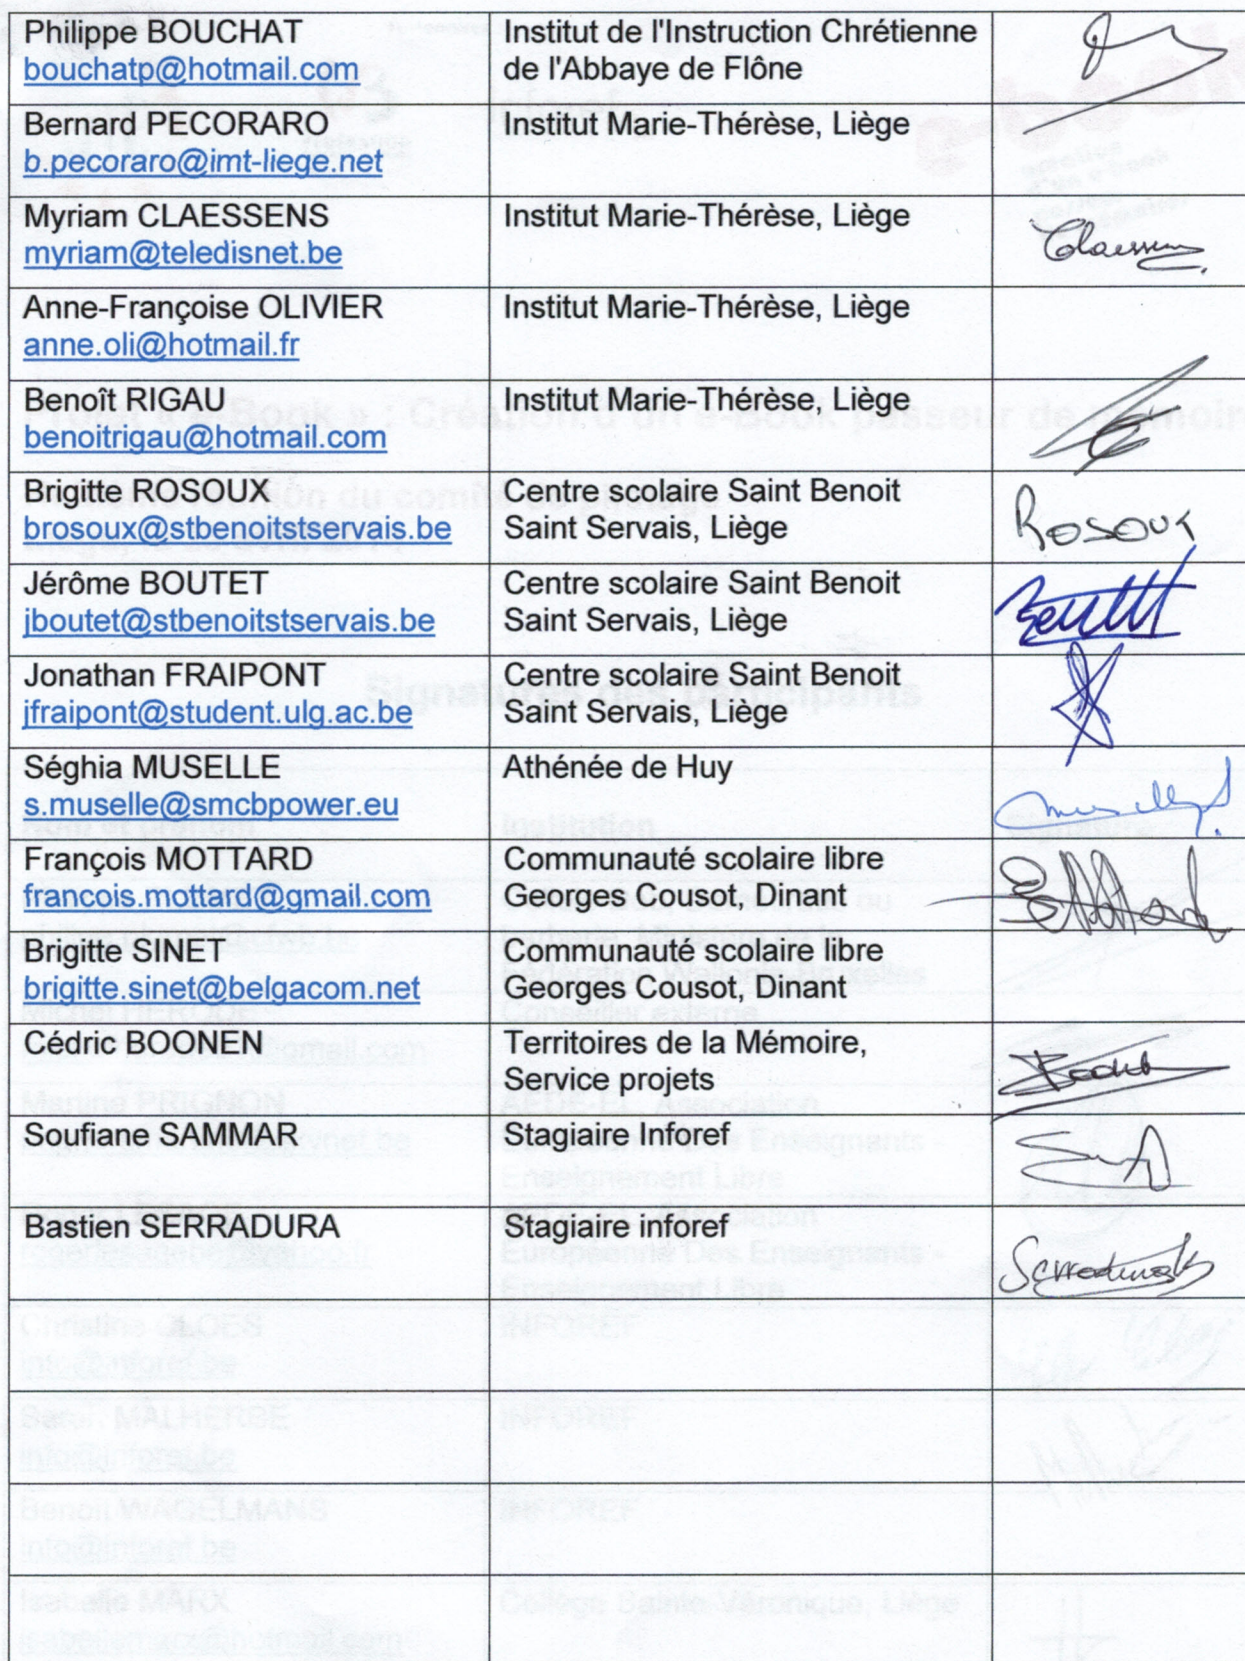 Philippe BOUCHAT
bouchatp@hotmail.com
Institut de l'Instruction Chrétienne
de l'Abbaye de Flône
Bernard PECORARO
b.pecoraro@imt-liege.net
Institut Marie-Thérèse, Liège
Myriam CLAESSENS
myriam@teledisnet.be
Institut Marie-Thérèse, Liège
Anne-Françoise OLIVIER
anne.oli@hotmail.fr
Institut Marie-Thérèse, Liège
Benoît RIGAU
benoitrigau@hotmail.com
Institut Marie-Thérèse, Liège
Brigitte ROSOUX
brosoux@stbenoitstservais.be
Centre scolaire Saint Benoit
Saint Servais, Liège
Rosoux
Jérôme BOUTET
jboutet@stbenoitstservais.be
Centre scolaire Saint Benoit
Saint Servais, Liège
Jonathan FRAIPONT
jfraipont@student.ulg.ac.be
Centre scolaire Saint Benoit
Saint Servais, Liège
Séghia MUSELLE
s.muselle@smcbpower.eu
Athénée de Huy
François MOTTARD
francois.mottard@gmail.com
Communauté scolaire libre
Georges Cousot, Dinant
Brigitte SINET
brigitte.sinet@belgacom.net
Communauté scolaire libre
Georges Cousot, Dinant
Cédric BOONEN
Territoires de la Mémoire,
Service projets
Soufiane SAMMAR
Stagiaire Inforef
Bastien SERRADURA
Stagiaire inforef